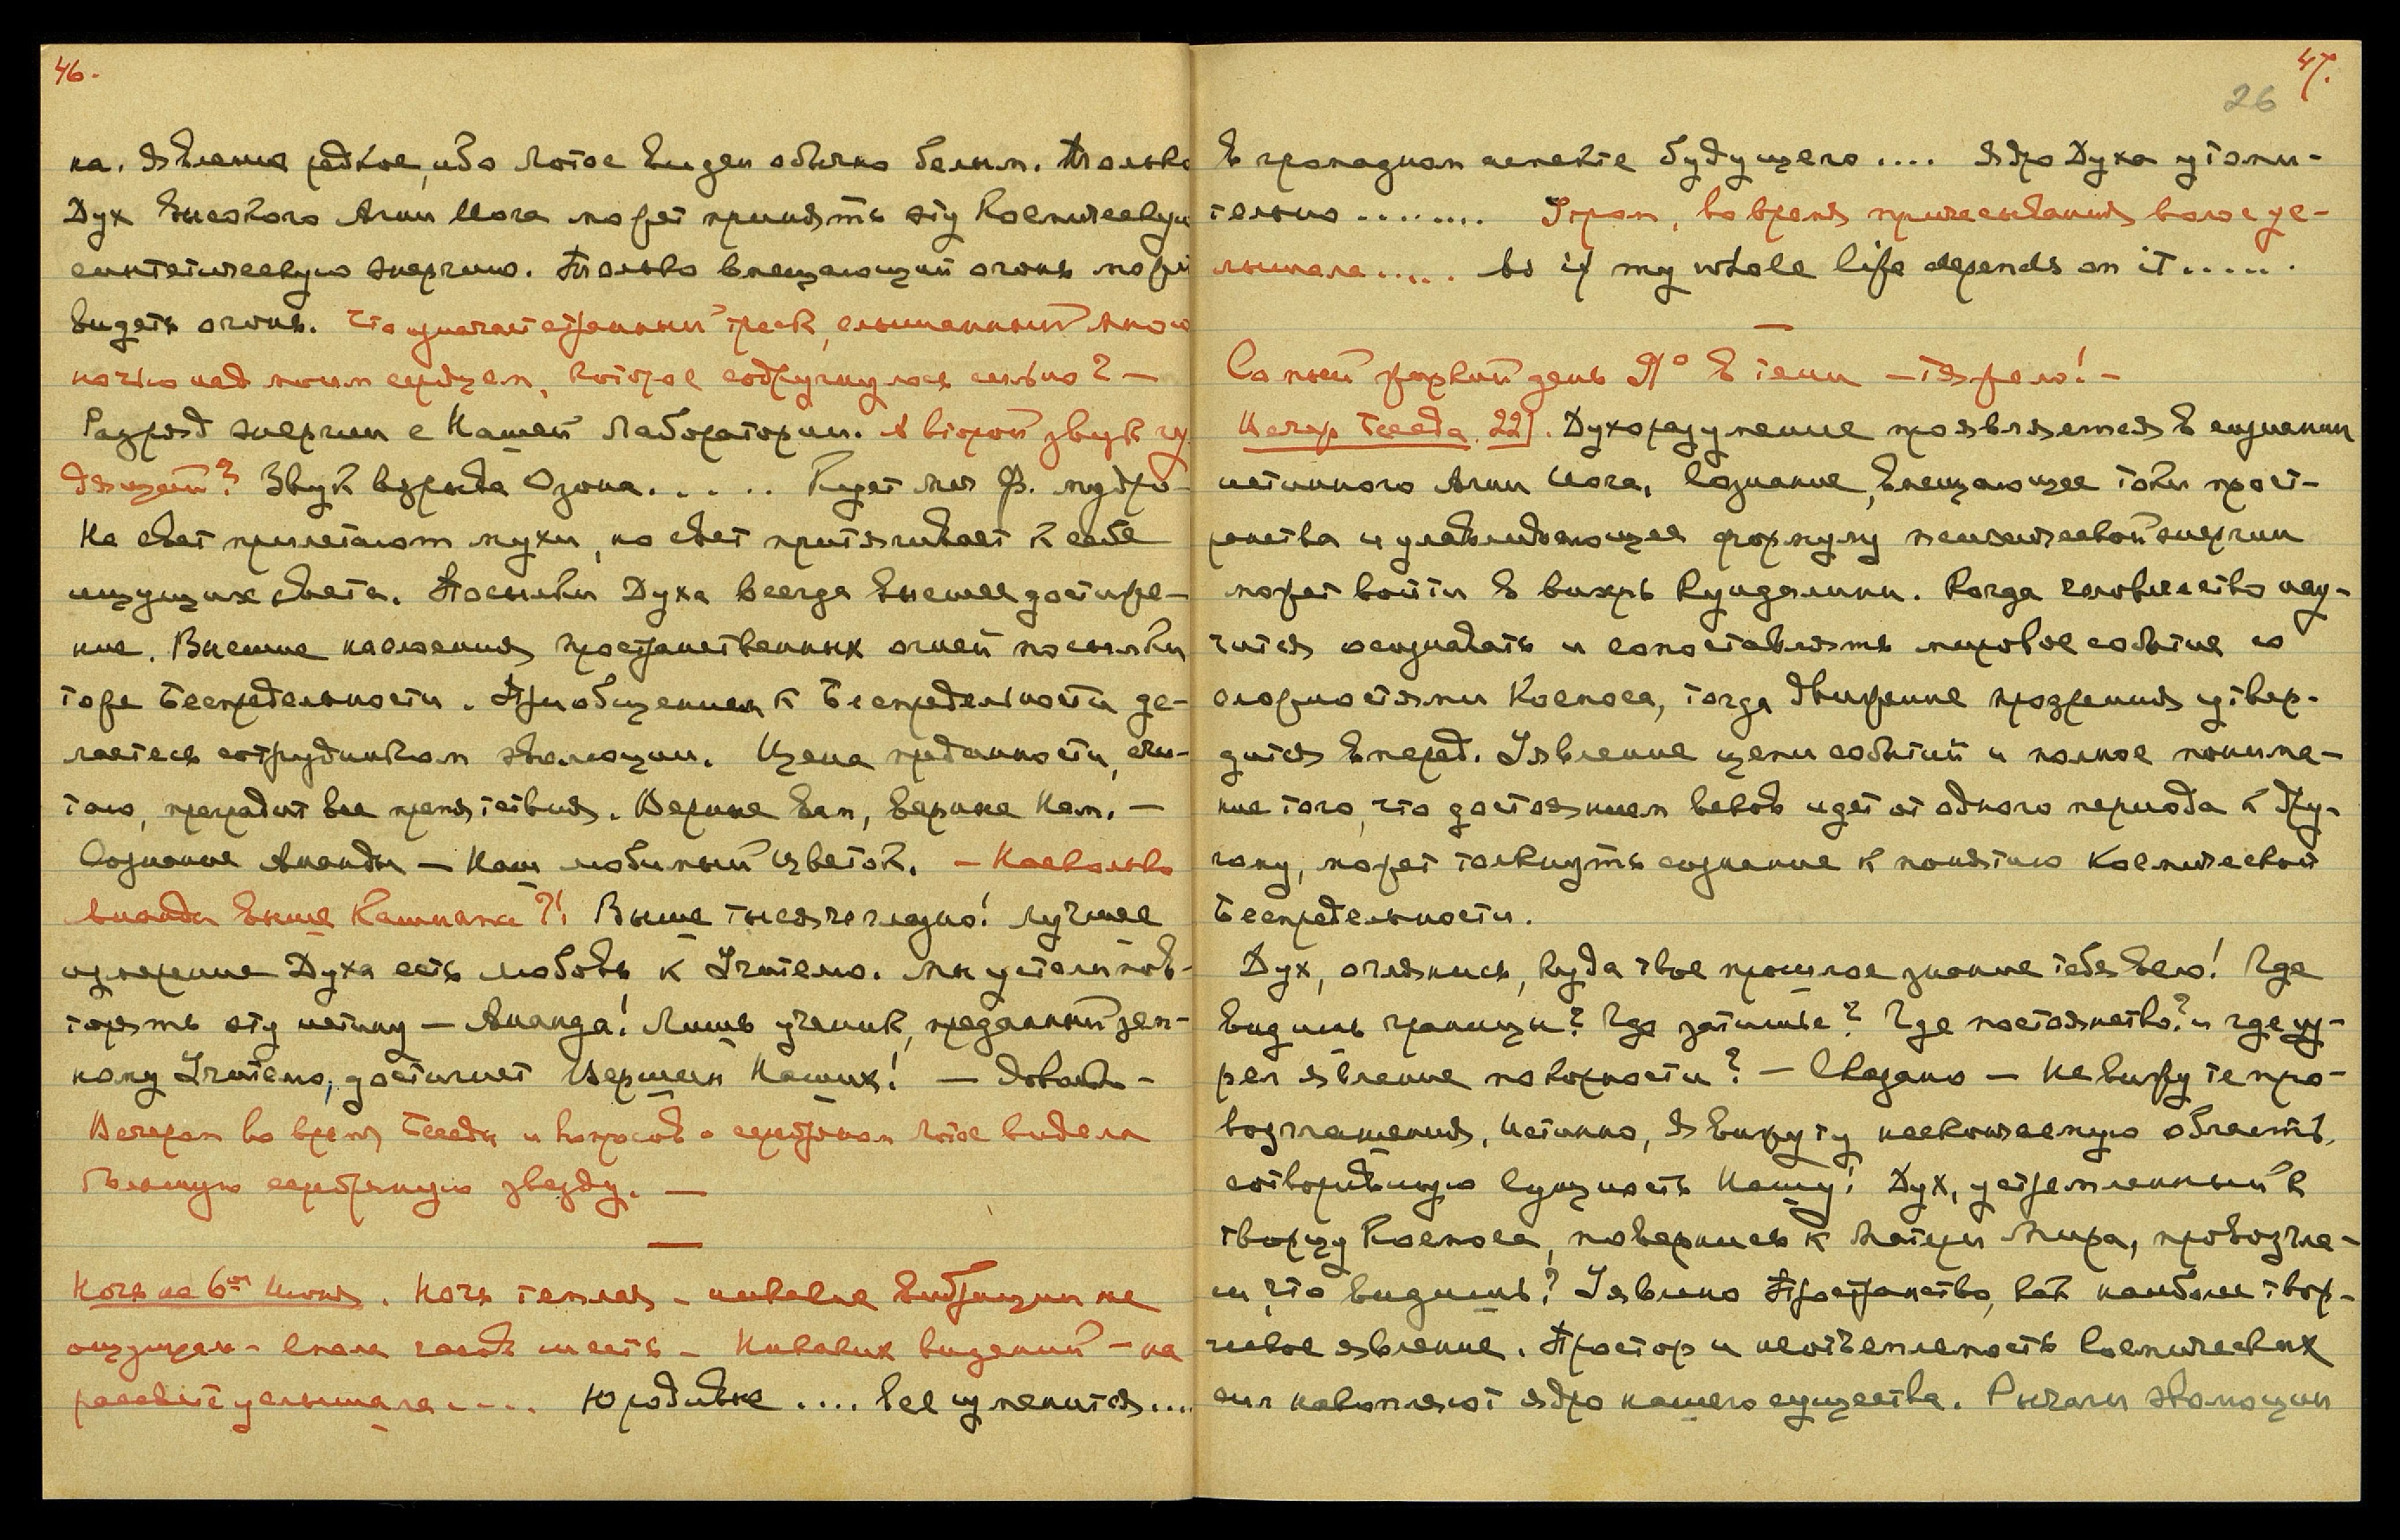 46.
на. Явление редкое, ибо Лотос виден обычно белым. Только
Дух высокого Агни Йога может принять эту космическую
синтетическую энергию. Только вмещающий огонь может
видеть огонь. Что означает странный треск, слышанный мною
ночью над моим сердцем, которое содрогнулось сильно? —
Разряд энергии с Нашей Лаборатории. А второй звук
Звук взрыва Озона...... Будет мудро
На свет прилетают мухи, но свет притягивает к себе
ищущих света. Посылки Духа всегда высшее достиже-
ние. Высшие наслоения пространственных огней посылки
тоже Беспредельности. Приобщением к Беспредельности де-
лаетесь сотрудником эволюции. Цена преданности,
преградит все препятствия. Верные Вам, верные Нам. —
Сознание Ананды — Наш любимый цветок. — Насколько
Ананда выше Кашиапа?! Выше тысячегладно! Лучшее
измерение Духа есть любовь к Учителю. Мы устали пов-
торять эту истину — Ананда! Лишь ученик, преданный зем-
ному Учителю, достигнет Вершин Наших! — Довольно —
Вечером во время Беседы и вопросов о серебряном Лотосе видела
большую серебряную звезду. —
—
Ночь на 6ое Июня. Ночь теплая — никакие вибрации не
ощущала — спала часов шесть — Никаких видений — на
рассвете услышала.... Юродивые .... все изменится....
47.
26
в громадном аспекте будущего.... Ядро Духа утоми-
тельно........ Утром, во время причесывания волос ус-
лышала..... As if my whole life depends on it......
—
Самый жаркий день 91° в тени — тяжело! —
Вечер Беседа 221. Духоразумение проявляется в сознании
истинного Агни Йога. Сознание, вмещающее токи прост-
ранства и улавливающее формулу психической энергии
может войти в вихрь Кундалини. Когда человечество нау-
чится осознавать и сопоставлять мировое событие со
сложностями Космоса, тогда движение прозрения утвер-
дится вперед. Уявление цепи событий и полное понима-
ние того, что достоянием веков идет от одного периода к дру-
гому, может толкнуть сознание к понятию Космической
Беспредельности.
Дух, оглянись, куда твое прошлое знание тебя вело! Где
видишь границы? Где затишье? Где постоянство? и где уз-
рел явление покорности? — Сказано — Не вижу те про-
возглашения, истинно, я вижу ту нескончаемую область,
сотворившую Сущность Нашу! Дух, устремленный к
творцу Космоса, повернись к Матери Мира, провозгла-
си, что видишь? Уявлено Пространство, как наиболее твор-
ческое явление. Простор и неотъемлемость Космических
сил накопляют ядро нашего существа. Рычаги эволюции